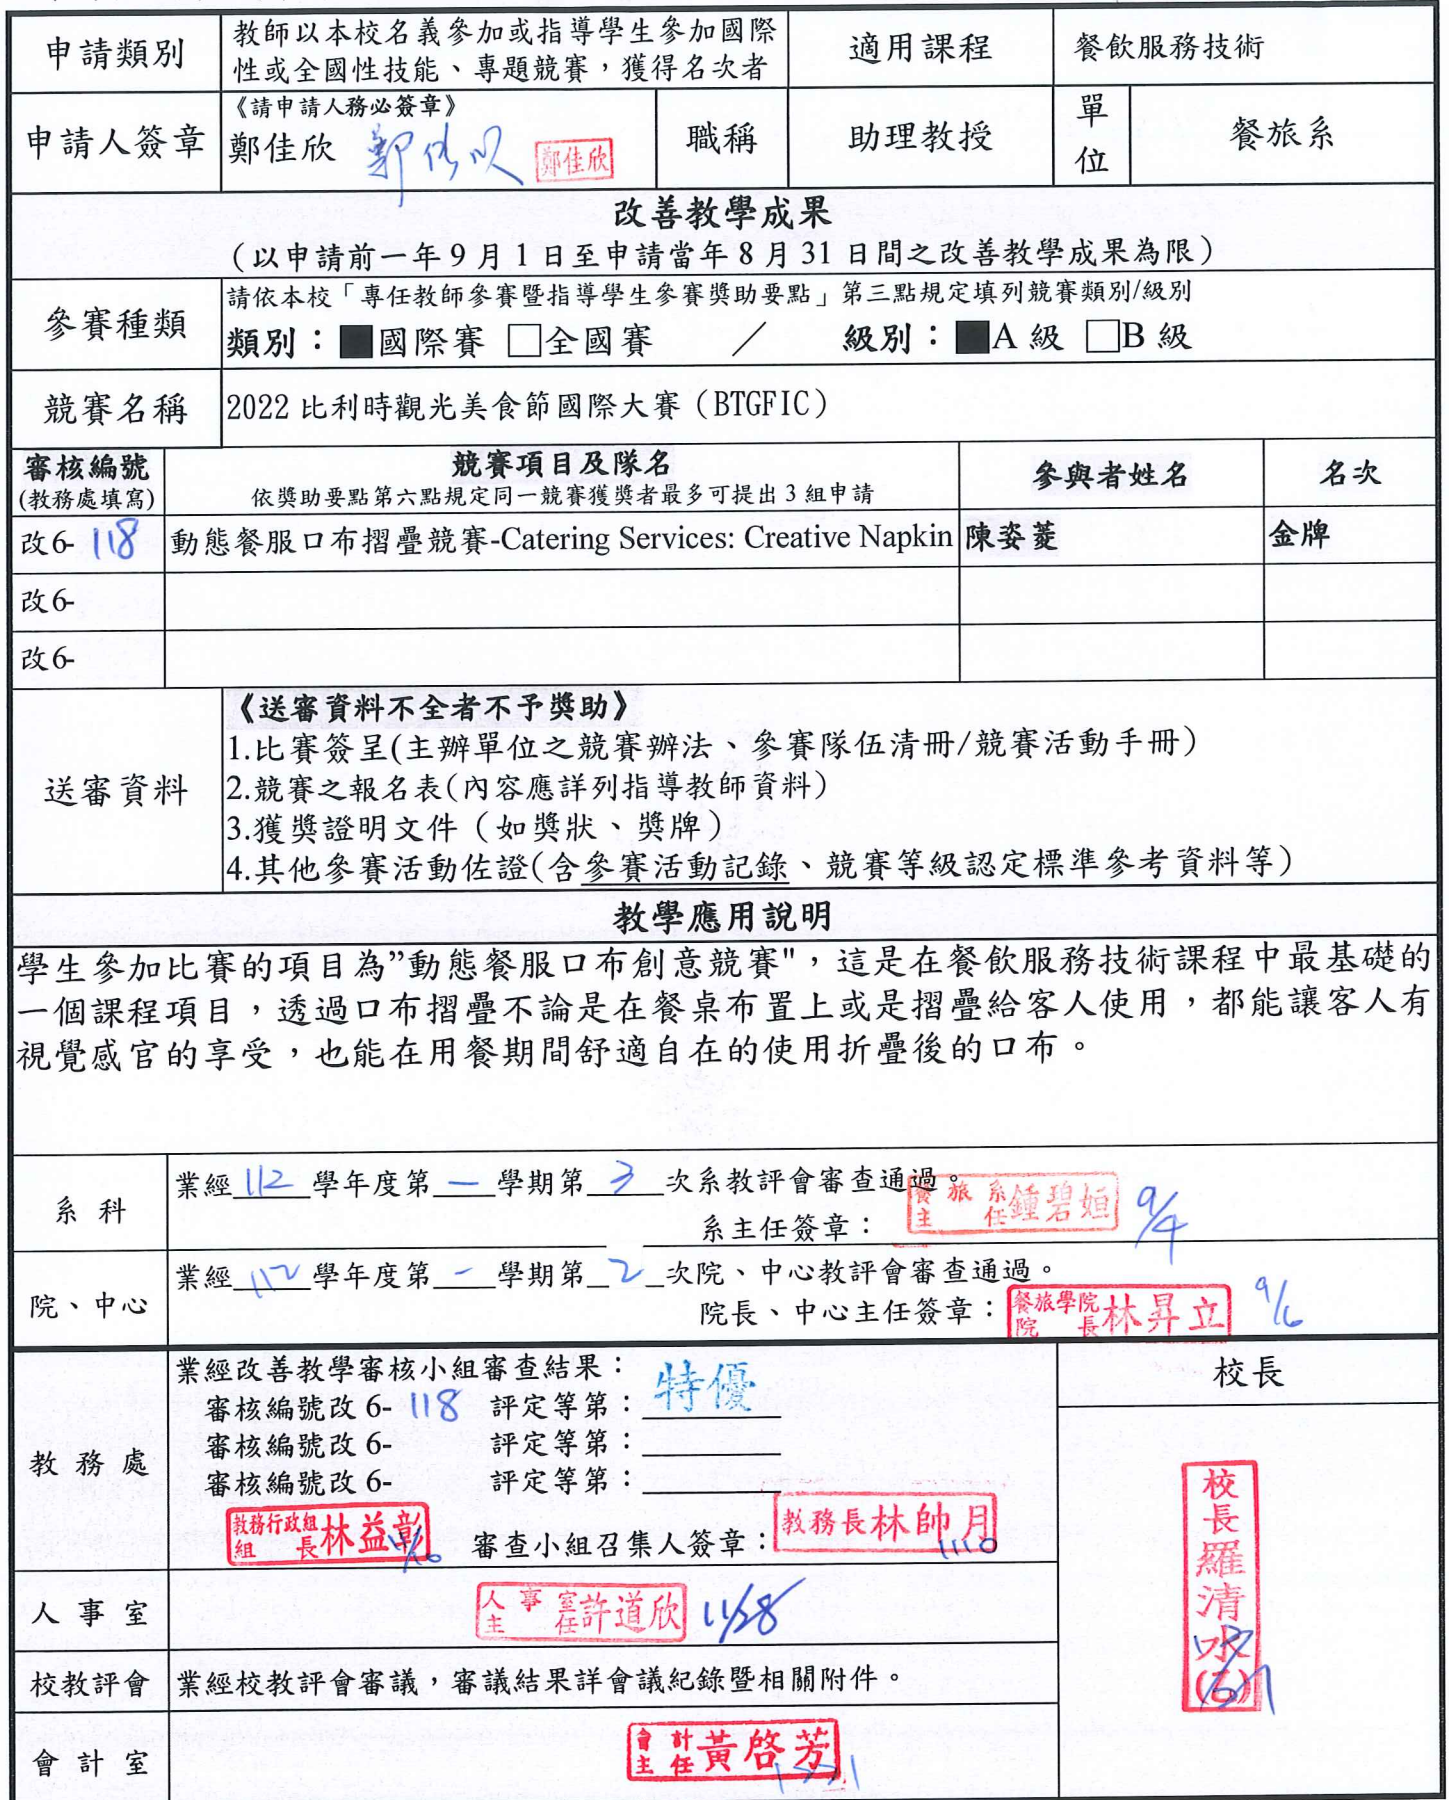 申請類別
教師以本校名義參加或指導學生參加國際
性或全國性技能、專題競賽，獲得名次者
適用課程
餐飲服務技術
申請人簽章
《請申請人務必簽章》
鄭佳欣
鄭佳欣
職稱
助理教授
單
位
餐旅系
改善教學成果
（以申請前一年9月1日至申請當年8月31日間之改善教學成果為限）
參賽種類
請依本校「專任教師參賽暨指導學生參賽獎助要點」第三點規定填列競賽類別/級別
類別：■國際賽 □全國賽 ／ 級別：■A 級 □B 級
競賽名稱
2022 比利時觀光美食節國際大賽（BTGFIC）
審核編號
(教務處填寫)
競賽項目及隊名
依獎助要點第六點規定同一競賽獲獎者最多可提出3組申請
參與者姓名
名次
改6- 118
動態餐服口布摺疊競賽-Catering Services: Creative Napkin
陳姿菱
金牌
改6-
改6-
送審資料
《送審資料不全者不予獎助》
1.比賽簽呈(主辦單位之競賽辦法、參賽隊伍清冊/競賽活動手冊)
2.競賽之報名表(內容應詳列指導教師資料)
3.獲獎證明文件（如獎狀、獎牌）
4.其他參賽活動佐證(含參賽活動記錄、競賽等級認定標準參考資料等)
教學應用說明
學生參加比賽的項目為”動態餐服口布創意競賽"，這是在餐飲服務技術課程中最基礎的
一個課程項目，透過口布摺疊不論是在餐桌布置上或是摺疊給客人使用，都能讓客人有
視覺感官的享受，也能在用餐期間舒適自在的使用折疊後的口布。
系 科
業經 112 學年度第 一 學期第 3 次系教評會審查通過。
系主任簽章：
餐旅系
主任 鍾碧姮 9/4
院、中心
業經 112 學年度第 一 學期第 2 次院、中心教評會審查通過。
院長、中心主任簽章：
餐旅學院
院長 林昇立 9/6
教 務 處
業經改善教學審核小組審查結果：
審核編號改 6- 118 評定等第：特優
審核編號改 6- 評定等第：
審核編號改 6- 評定等第：
教務行政組
組長 林益彰
審查小組召集人簽章：
教務長林帥月
1110
校長
校長羅清水
人 事 室
人事室
主任 許道欣 11/28
校教評會
業經校教評會審議，審議結果詳會議紀錄暨相關附件。
會 計 室
會計
主任 黃啓芳